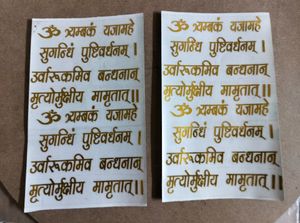 ॐ त्र्यम्बकं यजामहे
सुगन्धिं पुष्टिवर्धनम् ।
उर्वारुकमिव बन्धनान्
मृत्योर्मुक्षीय मामृतात् ।।
ॐ त्र्यम्बकं यजामहे
सुगन्धिं पुष्टिवर्धनम् ।
उर्वारुकमिव बन्धनान्
मृत्योर्मुक्षीय मामृतात् ।।
ॐ त्र्यम्बकं यजामहे
सुगन्धिं पुष्टिवर्धनम् ।
उर्वारुकमिव बन्धनान्
मृत्योर्मुक्षीय मामृतात् ।।
ॐ त्र्यम्बकं यजामहे
सुगन्धिं पुष्टिवर्धनम् ।
उर्वारुकमिव बन्धनान्
मृत्योर्मुक्षीय मामृतात् ।।